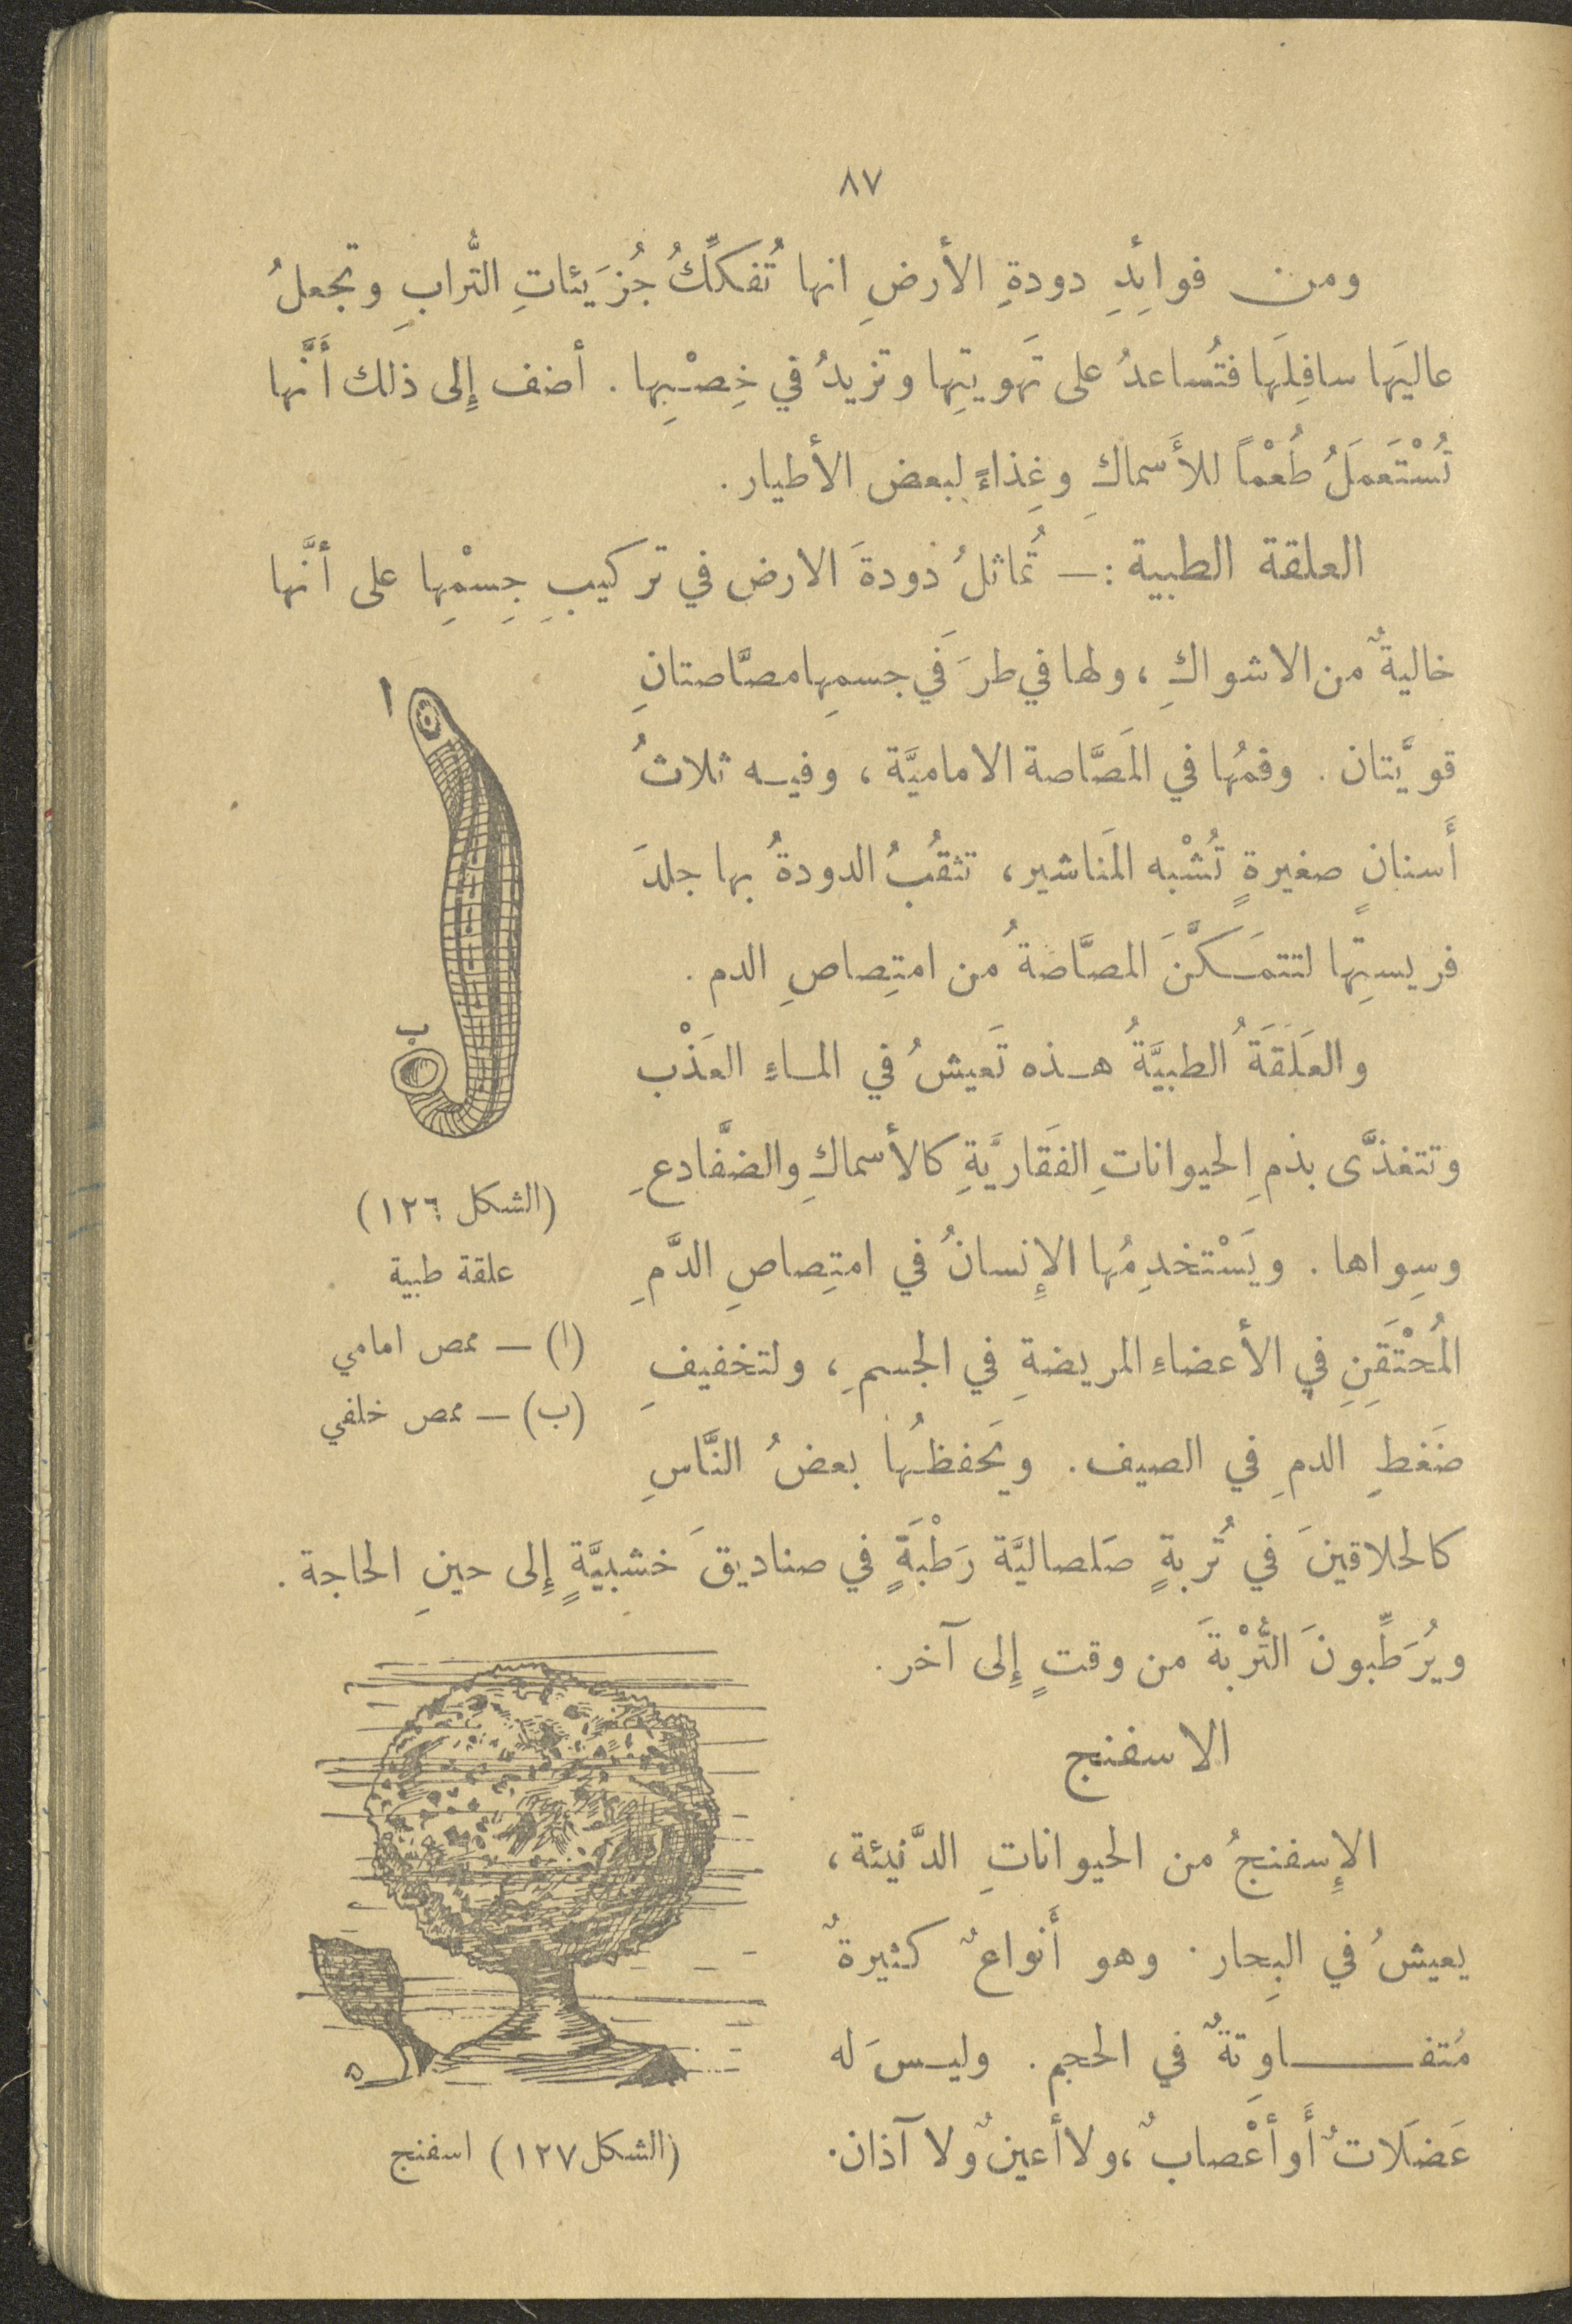 ٨٧
ومن فوائِدِ دودةِ الأرضِ انها تُفكِّكُ جُزَيئاتِ التُّرابِ وتجعلُ
عاليَها سافِلَها فتُساعدُ على تَهويتِها وتزيدُ في خِصْبِها . أضف إِلى ذلك أَنَّها
تُسْتَعمَلُ طُعْماً للأَسماكِ وغِذاءً لبعض الأطيار .
العلقة الطبية : — تُماثلُ دودةَ الارض في تركيبِ جِسْمِها على أنَّها
خاليةٌ من الاشواكِ ، ولها في طرَفَي جسمِها مصَّاصتانِ
قويَّتان . وفمُها في المَصَّاصة الاماميَّة ، وفيه ثلاثُ
أَسنانٍ صغيرةٍ تُشْبه المَناشير ، تثقُبُ الدودةُ بها جلدَ
فريستِها لتتمَكَّنَ المصَّاصةُ من امتِصاصِ الدم .
والعَلَقَةُ الطبيَّةُ هذه تَعيشُ في الماءِ العَذْب
وتتغذَّى بدمِ الحيواناتِ الفَقَاريَّةِ كالأسماكِ والضَّفادعِ
وسِواها . ويَسْتخدِمُها الإِنسانُ في امتِصاصِ الدَّمِ
المُحْتَقَنِ في الأعضاءِ المريضةِ في الجسمِ ، ولتخفيفِ
ضَغطِ الدمِ في الصيف . ويَحفظُها بعضُ النَّاسِ
كالحلاقينَ في تُربةٍ صَلصاليَّة رَطْبَةٍ في صناديقَ خشبيَّةٍ إِلى حينِ الحاجة .
ويُرَطِّبونَ التُّرْبةَ من وقتٍ إِلى آخر .
ا
ب
(الشكل ١٢٦)
علقة طبية
(ا) — ممص امامي
(ب) — ممص خلفي
الاسفنج
الإِسفنجُ من الحيواناتِ الدَّنيئة ،
يعيشُ في البِحار . وهو أَنواعٌ كثيرةٌ
مُتفاوِتةٌ في الحجم . وليسَ له
عَضَلاتٌ أَو أعْصابٌ ، ولا أعينٌ ولا آذان .
(الشكل ١٢٧) اسفنج